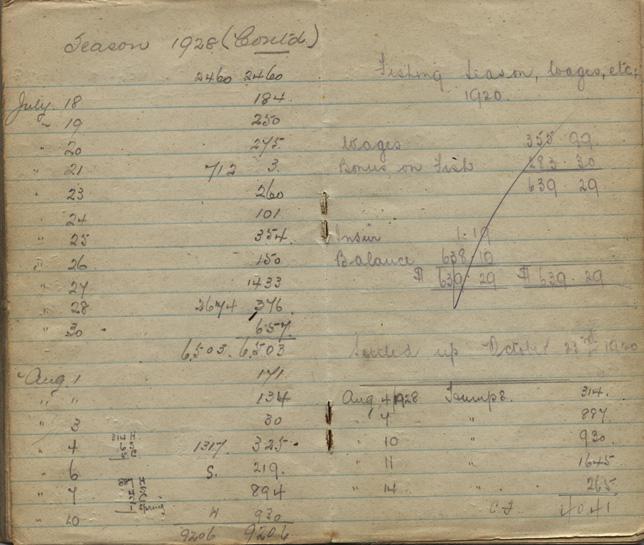 Season 1928 (Contd.)
2460 2460
July 18 184
" 19 250
" 20 275
" 21 712 3
" 23 260
" 24 101
" 25 354
" 26 150
" 27 1433
" 28 2674 376
" 30 657
6,503. 6,503
Aug. 1 171
" " 134
" 3 30
" 4 1317 325
" 6 S. 219.
" 7 894
" 10 H 930
9206 9206
Fishing Season, Wages, etc;
1920.
Wages 355.99
Bonus on Fish 283.30
639.29
Insur 1.19
Balance 638.10
$ 639.29 $ 639.29
Settled up October 23rd 1920
Aug 4/1928 Humps. 314.
" 7 " 887
" 10 " 930
" 11 " 1645
" 14 " 265
4041